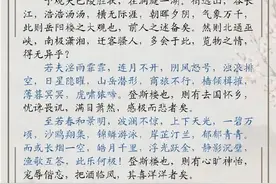 予观夫巴陵胜状，在洞庭一湖。衔远山，吞长
江，浩浩汤汤，横无际涯，朝晖夕阴，气象万千，
此则岳阳楼之大观也，前人之述备矣。然则北通巫
峡，南极潇湘，迁客骚人，多会于此，览物之情，
得无异乎？
若夫淫雨霏霏，连月不开，阴风怒号，浊浪排
空，日星隐曜，山岳潜形，商旅不行，樯倾楫摧，
薄暮冥冥，虎啸猿啼。登斯楼也，则有去国怀乡，
忧谗畏讥，满目萧然，感极而悲者矣。
至若春和景明，波澜不惊，上下天光，一碧万
顷，沙鸥翔集，锦鳞游泳，岸芷汀兰，郁郁青青。
而或长烟一空，皓月千里，浮光跃金，静影沉璧，
渔歌互答，此乐何极！登斯楼也，则有心旷神怡，
宠辱偕忘，把酒临风，其喜洋洋者矣。